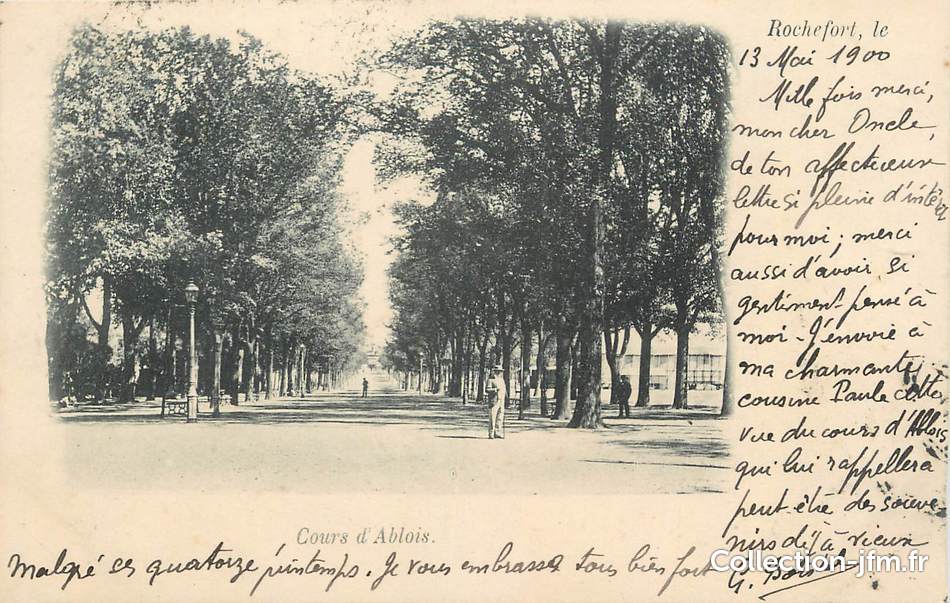 Rochefort, le
13 Mai 1900
Mille fois merci,
mon cher Oncle,
de ton affectueux
lettre si pleine d'intérêt
pour moi ; merci
aussi d'avoir si
gentiment pensé à
moi - J'envoie à
ma charmante
cousine Paule cette
vue du cours d'Ablois
qui lui rappellera
peut-être des souve-
nirs déjà vieux
Cours d'Ablois.
Malgré ses quatorze printemps. Je vous embrasse tous bien fort
G.
Collection-jfm.fr